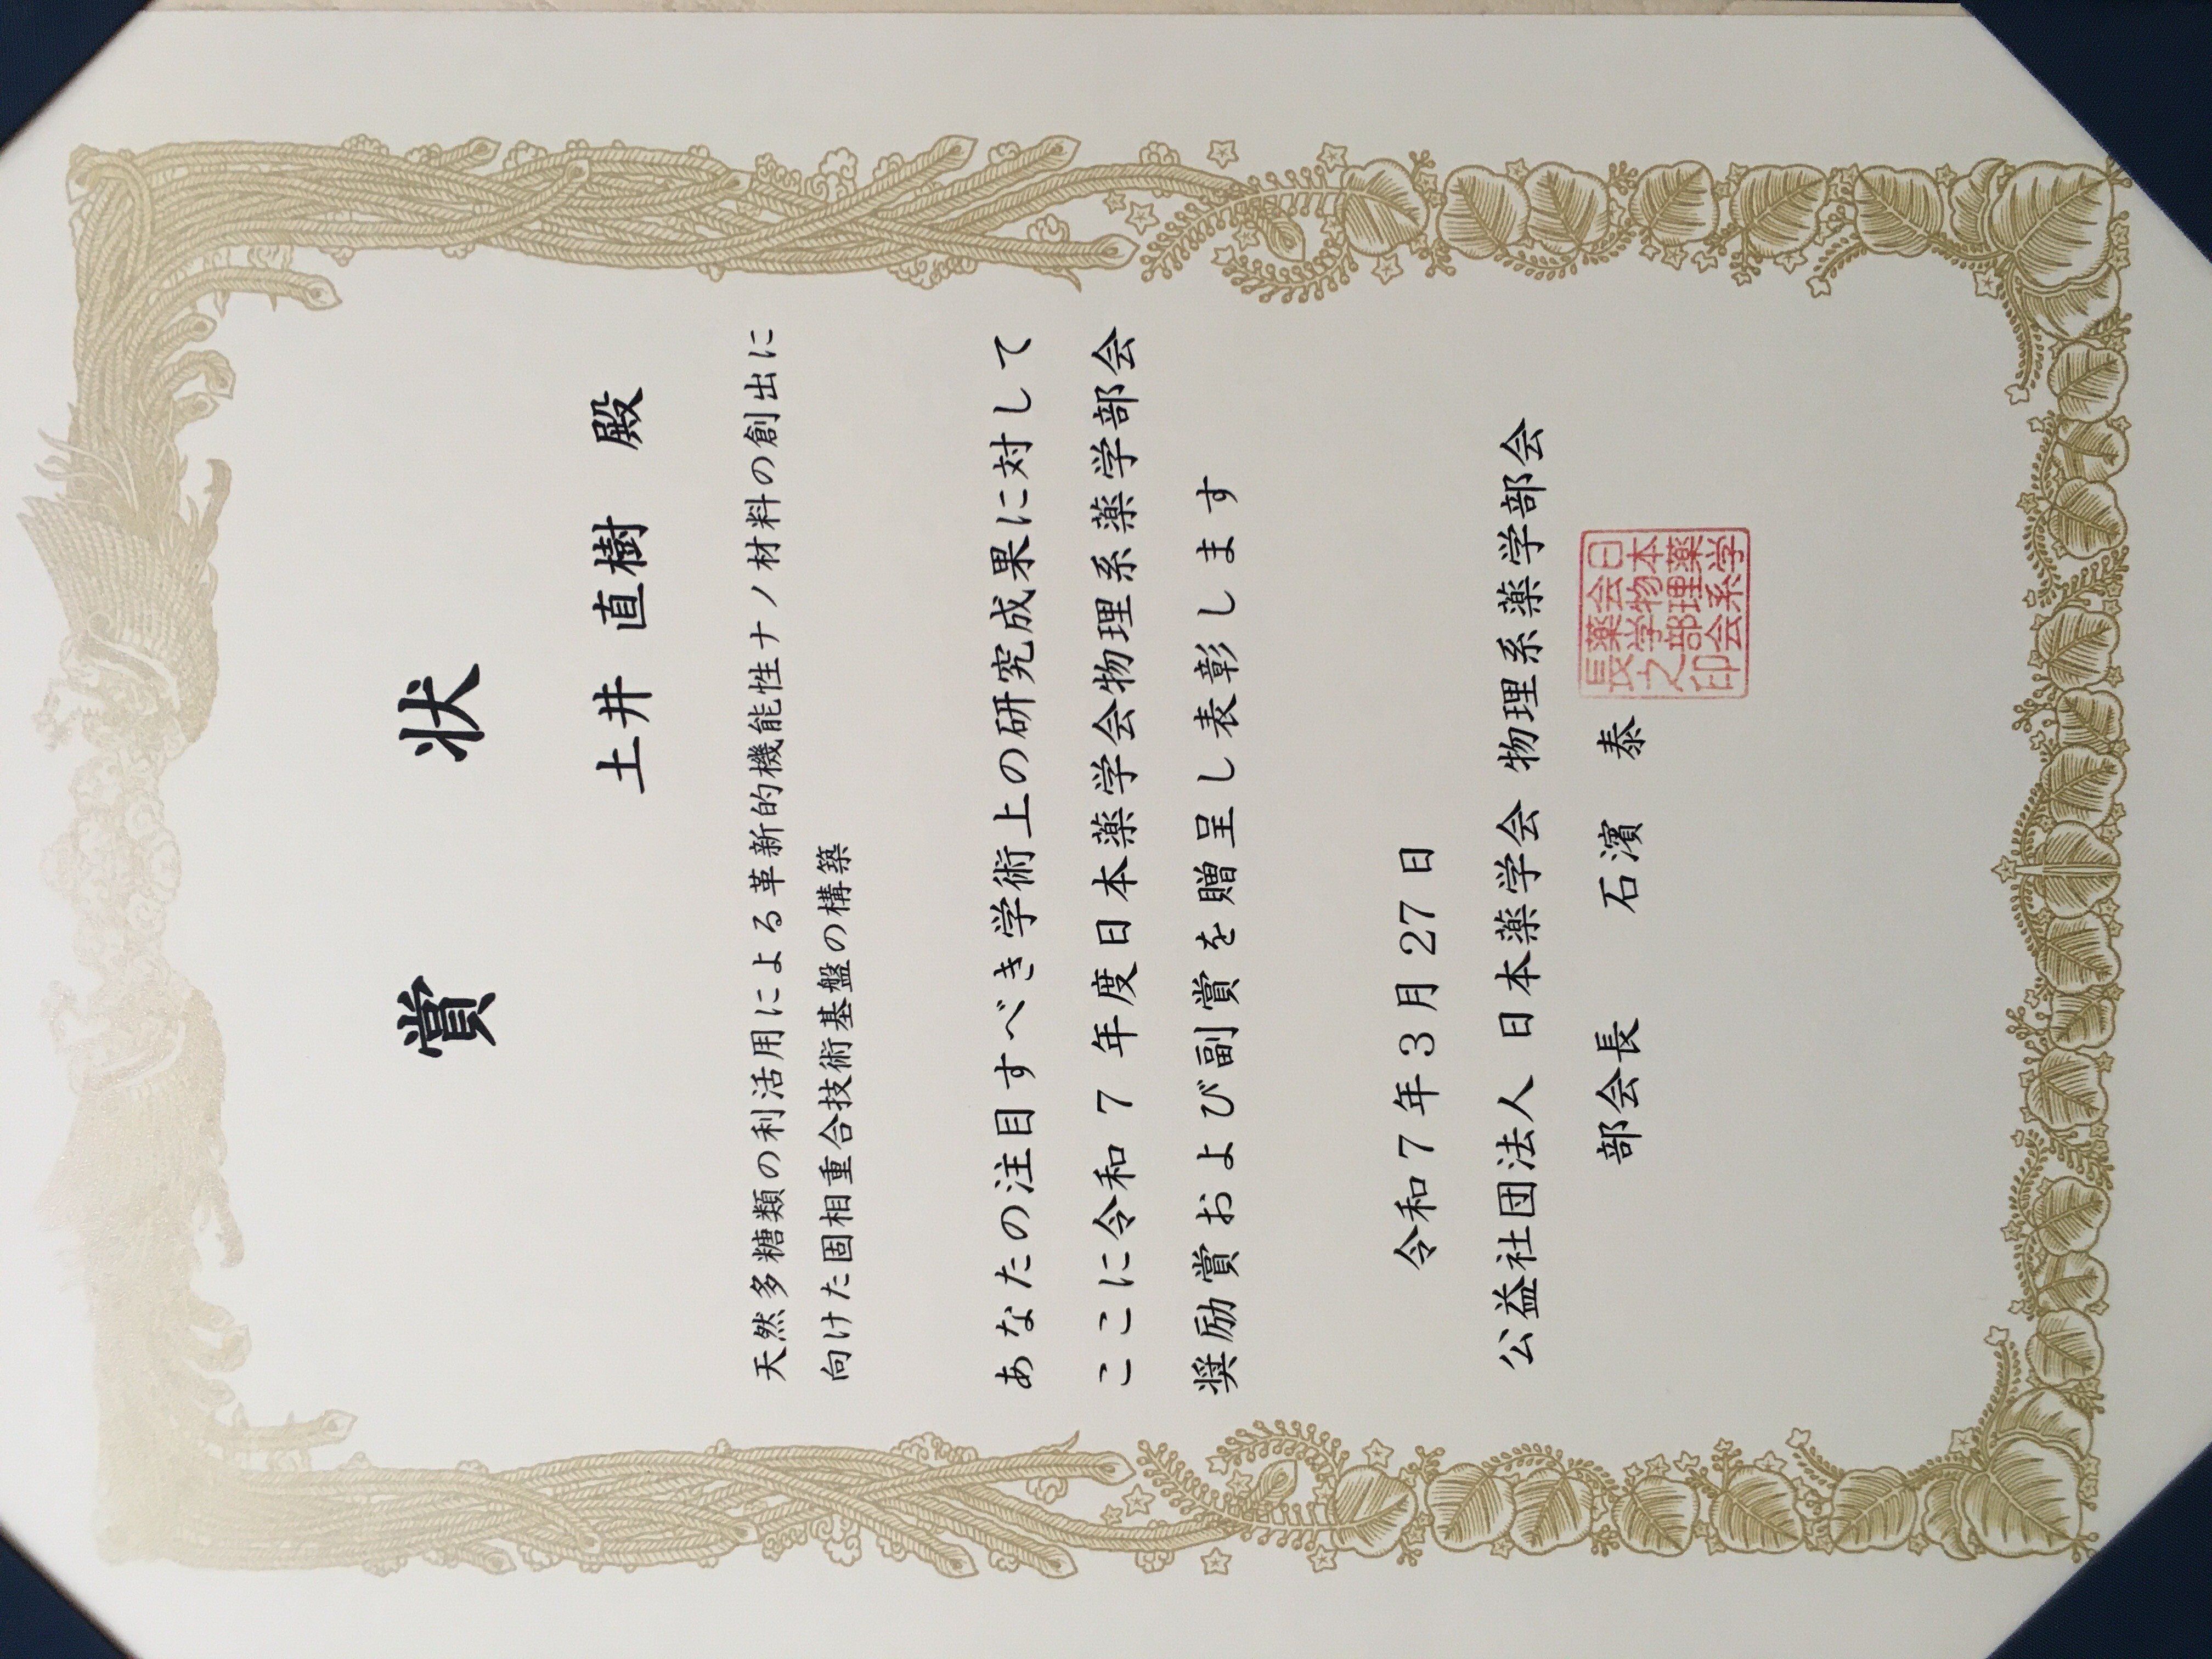 賞 状
土井 直樹 殿
天然多糖類の利活用による革新的機能性ナノ材料の創出に
向けた固相重合技術基盤の構築
あなたの注目すべき学術上の研究成果に対して
ここに令和 7 年度日本薬学会物理系薬学部会
奨励賞および副賞を贈呈し表彰します
令和7年3月27日
公益社団法人 日本薬学会 物理系薬学部会
部会長 石濱 泰
日本薬学
会物理系
薬学部会
長之印